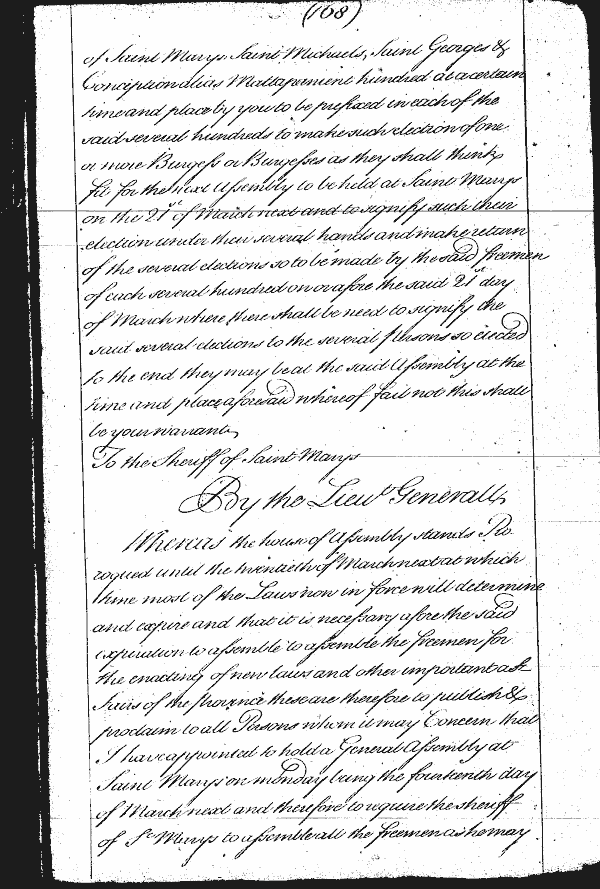 (168)
of Saint Marys Saint Michaels, Saint Georges &
Conception alias Mattapanient hundred at a certain
time and place by you to be prefixed in each of the
said several hundreds to make such election of one
or more Burgess or Burgesses as they shall think
fit for the next Assembly to be held at Saint Marys
on the 21st of March next and to signify such their
election under their several hands and make return
of the several elections so to be made by the said freemen
of each several hundred on or afore the said 21st day
of March where there shall be need to signify the
said several elections to the several Persons so elected
to the end they may be at the said Assembly at the
time and place aforesaid whereof fail not this shall
be your warrant,
To the Sheriff of Saint Marys
By the Lieut Generall,
Whereas the house of Assembly stands Pro
rogued until the twentieth of March next at which
time most of the Laws now in force will determine
and expire and that it is necessary afore the said
expiration to assemble to assemble the freemen for
the enacting of new laws and other important af
fairs of the Province these are therefore to publish &
proclaim to all Persons whom it may Concern that
I have appointed to hold a General Assembly at
Saint Marys on monday being the fourteenth day
of March next and therefore to require the sheriff
of St Marys to assemble all the freemen as he may